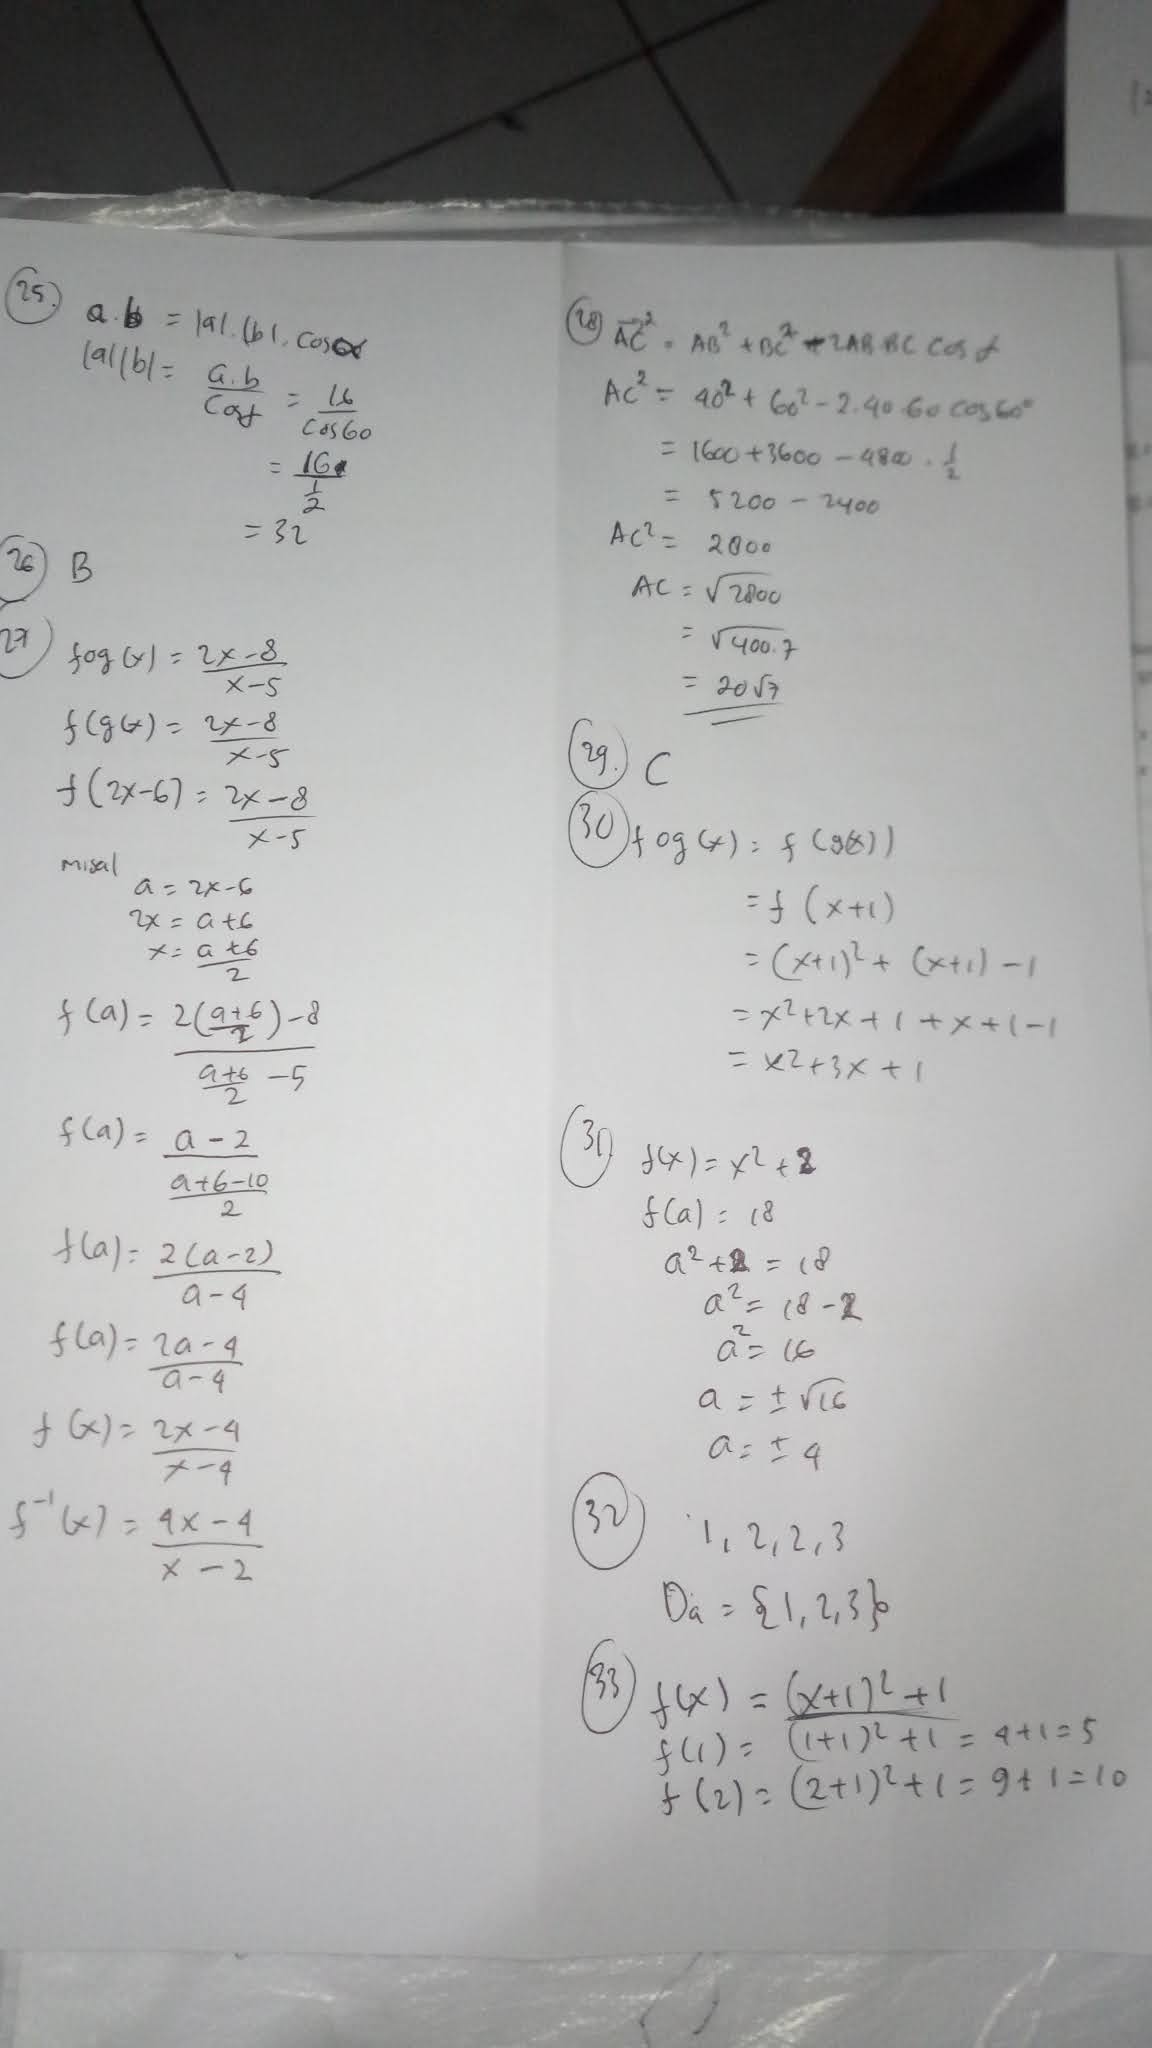 25.
a.b = |a|.|b|. cos α
|a||b| = a.b / Cos = 16 / cos 60
= 16 / 1/2
= 32
26 B
27 fog(x) = 2x-8 / x-5
f(g(x) = 2x-8 / x-5
f(2x-6) = 2x-8 / x-5
misal
a = 2x-6
2x = a+6
x = a+6 / 2
f(a) = 2(a+6 / 2) - 8 / a+6 / 2 - 5
f(a) = a-2 / a+6-10 / 2
f(a) = 2(a-2) / a-4
f(a) = 2a-4 / a-4
f(x) = 2x-4 / x-4
f⁻¹(x) = 4x-4 / x-2
28 AC² = AB² + BC² - 2AB.BC cos
AC² = 40² + 60² - 2.40.60 cos 60°
= 1600 + 3600 - 4800 . 1/2
= 5200 - 2400
AC² = 2800
AC = √2800
= √400.7
= 20√7
29. C
30 fog(x) = f(g(x))
= f(x+1)
= (x+1)² + (x+1) - 1
= x²+2x+1+x+1-1
= x²+3x+1
31 f(x) = x²+2
f(a) = 18
a²+2 = 18
a² = 18-2
a² = 16
a = ±√16
a = ±4
32 1, 2, 2, 3
Da = {1, 2, 3}
33 f(x) = (x+1)²+1
f(1) = (1+1)²+1 = 4+1=5
f(2) = (2+1)²+1 = 9+1=10